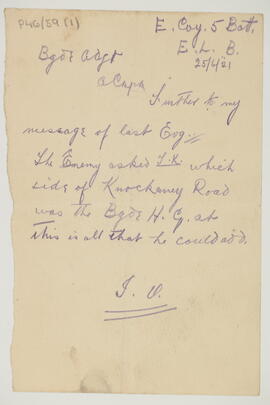 P46/59 (1)
E. Coy. 5 Batt.
E. L. B.
25/4/21
Bgde Adjt
a Cara
Further to my
message of last Evg.
The Enemy asked T.K. which
side of Knockaney Road
was the Bgde H. Q. at
this is all that he could add.
I. O.